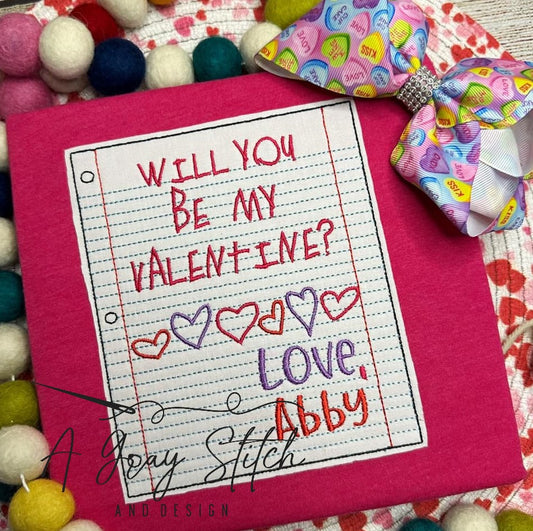 WILL YOU
BE MY
VALENTINE?
LOVE,
Abby
A Goay Stitch
AND DESIGN